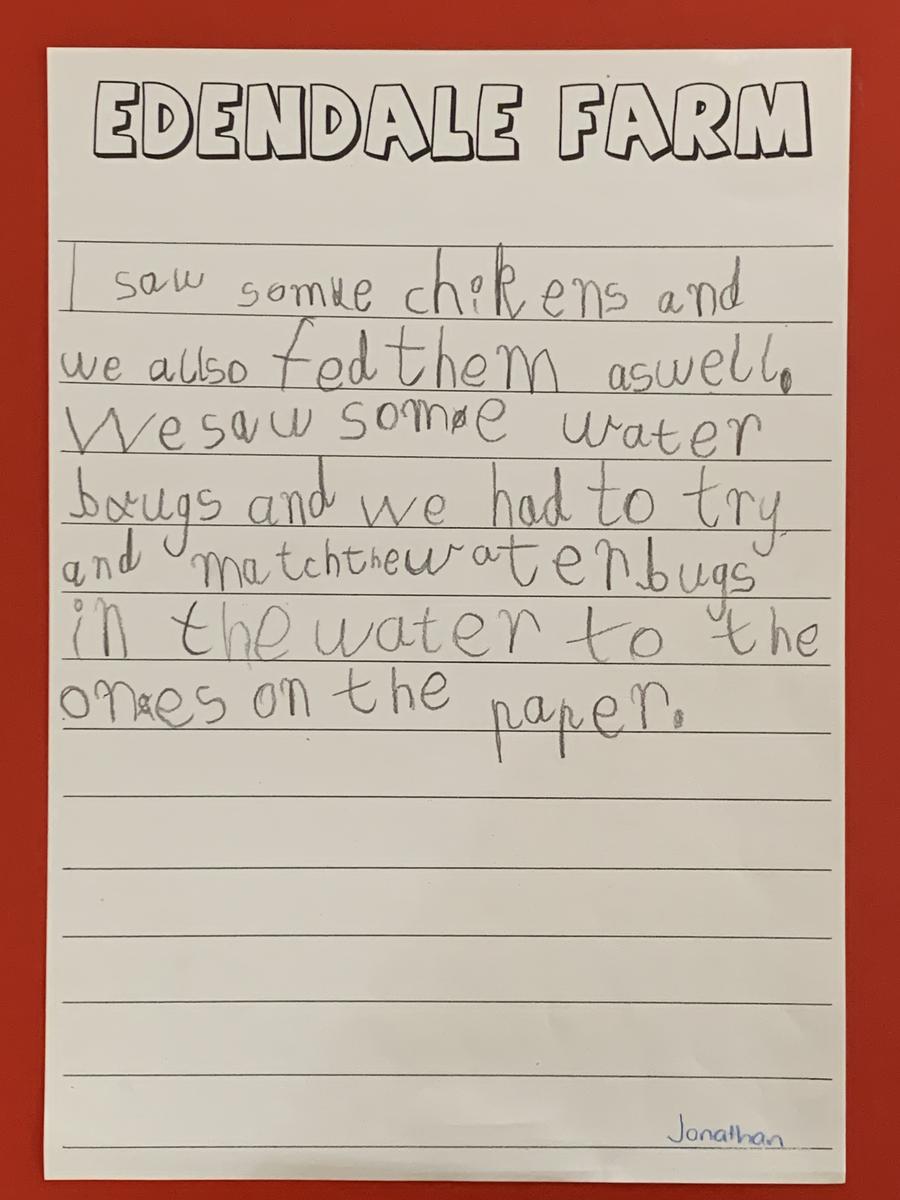 EDENDALE FARM
I saw some chikens and
we allso fed them aswell.
We saw some water
bugs and we had to try
and match the water bugs
in the water to the
ones on the paper.
Jonathan